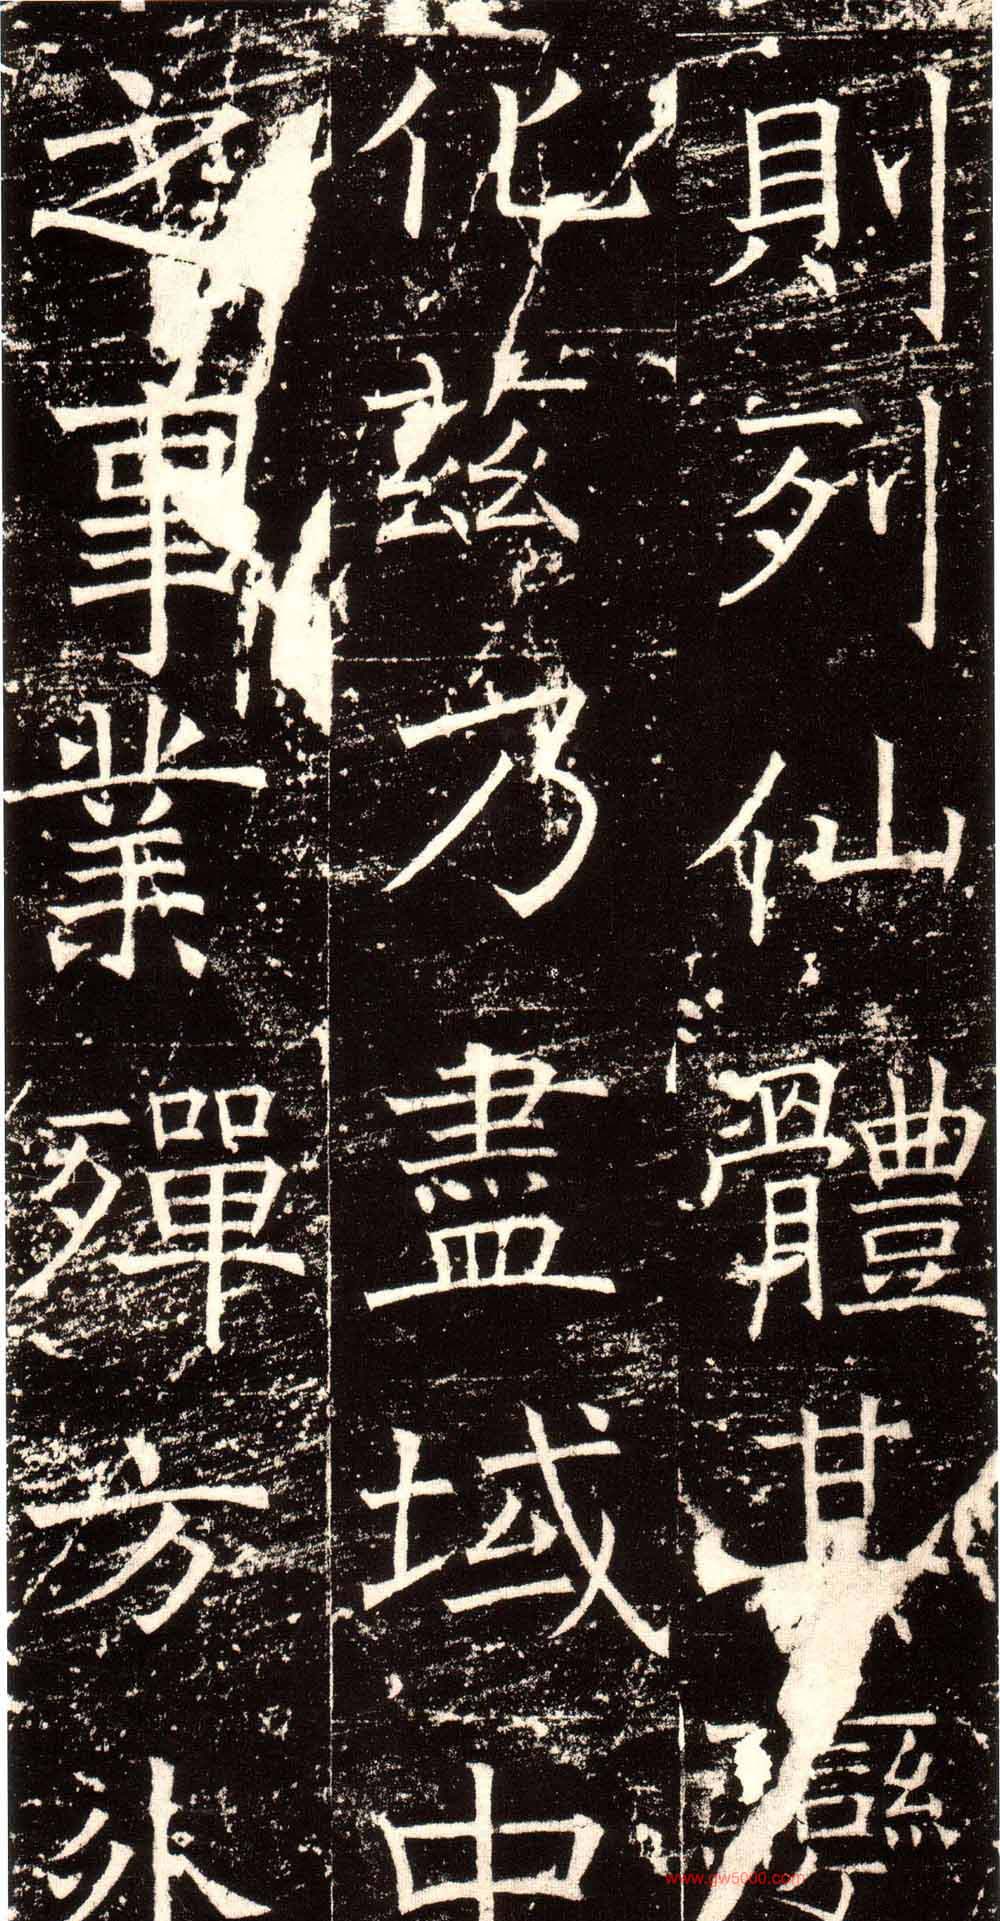 則列仙體其變
化玆乃盡域中
之事業殫方外
www.gw5000.com